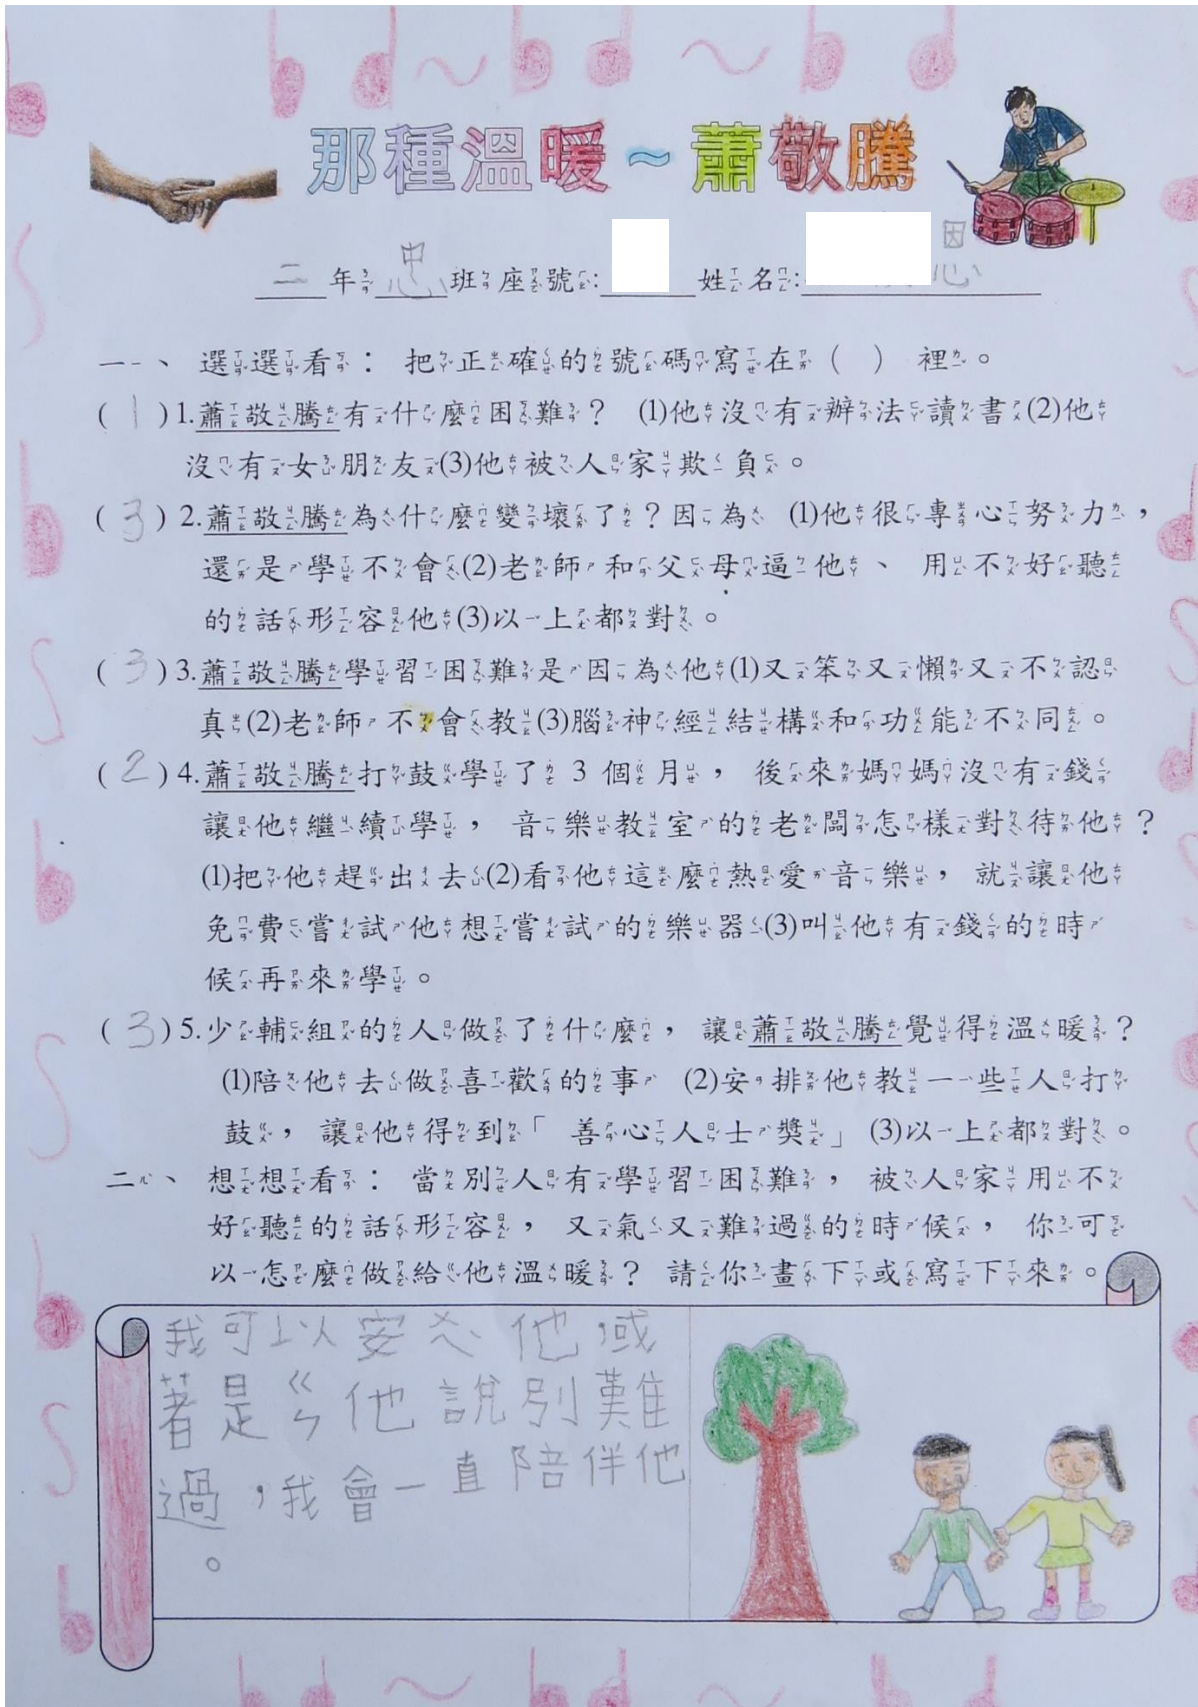 那種溫暖~蕭敬騰
二年忠班座號: 姓名: 恩
一、選選看：把正確的號碼寫在（ ）裡。
(1)1.蕭敬騰有什麼困難？ (1)他沒有辦法讀書(2)他
沒有女朋友(3)他被人家欺負。
(3) 2.蕭敬騰為什麼變壞了？因為 (1)他很專心努力，
還是學不會(2)老師和父母逼他、用不好聽
的話形容他(3)以上都對。
(3)3.蕭敬騰學習困難是因為他(1)又笨又懶又不認
真(2)老師不會教(3)腦神經結構和功能不同。
(2)4.蕭敬騰打鼓學了3個月，後來媽媽沒有錢
讓他繼續學，音樂教室的老闆怎樣對待他？
(1)把他趕出去(2)看他這麼熱愛音樂，就讓他
免費嘗試他想嘗試的樂器(3)叫他有錢的時
候再來學。
(3)5.少輔組的人做了什麼，讓蕭敬騰覺得溫暖？
(1)陪他去做喜歡的事 (2)安排他教一些人打
鼓，讓他得到「善心人士獎」(3)以上都對。
二、想想看：當別人有學習困難，被人家用不
好聽的話形容，又氣又難過的時候，你可
以怎麼做給他溫暖？請你畫下或寫下來。
我可以安ㄨㄟˋ他，或
著是ㄍㄣ他說別難
過，我會一直陪伴他
。